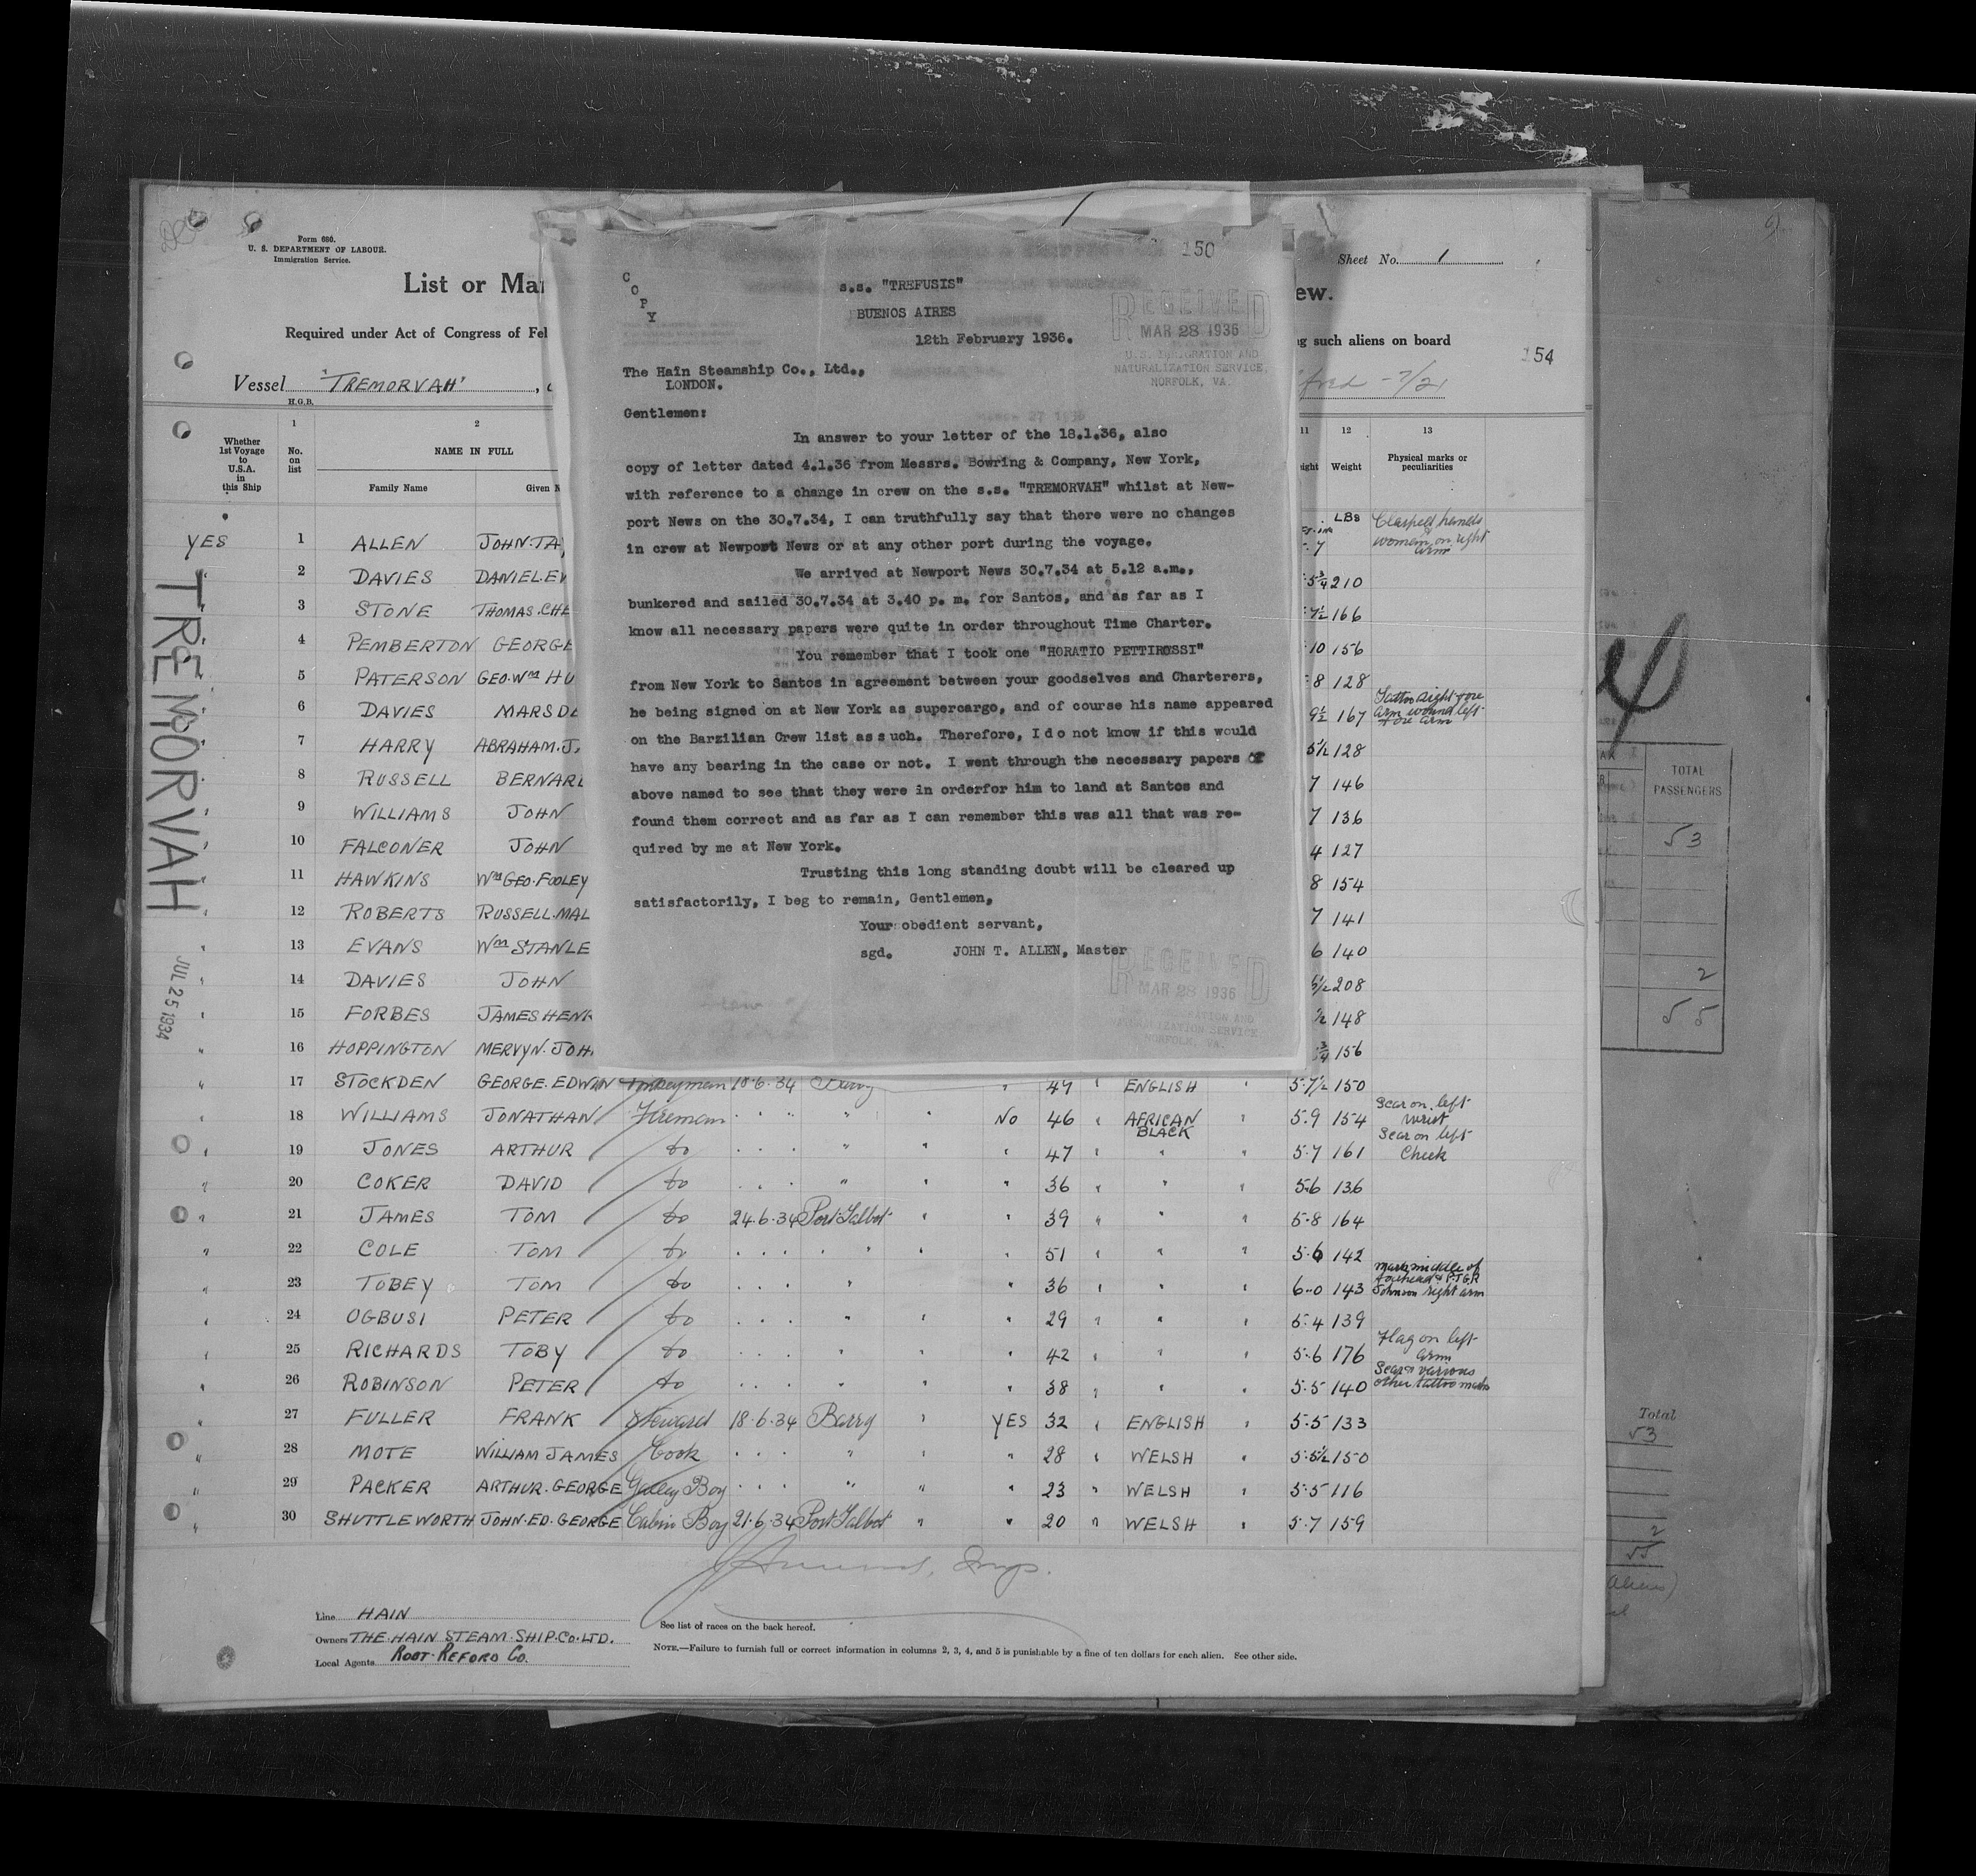 Form 680.
U. S. DEPARTMENT OF LABOUR.
Immigration Service.
List or Ma
ew.
Sheet No. 1
Required under Act of Congress of Fe
g such aliens on board
154
Vessel "TREMORVAH",
H.G.B.
150
COPY
s.s. "TREFUSIS"
BUENOS AIRES
12th February 1936.
RECEIVED
MAR 28 1936
U.S. IMMIGRATION AND
NATURALIZATION SERVICE,
NORFOLK, VA.
The Hain Steamship Co., Ltd.,
LONDON.
Gentlemen:
In answer to your letter of the 18.1.36, also
copy of letter dated 4.1.36 from Messrs. Bowring & Company, New York,
with reference to a change in crew on the s.s. "TREMORVAH" whilst at New-
port News on the 30.7.34, I can truthfully say that there were no changes
in crew at Newport News or at any other port during the voyage.
We arrived at Newport News 30.7.34 at 5.12 a.m.,
bunkered and sailed 30.7.34 at 3.40 p. m. for Santos, and as far as I
know all necessary papers were quite in order throughout Time Charter.
You remember that I took one "HORATIO PETTIROSSI"
from New York to Santos in agreement between your goodselves and Charterers,
he being signed on at New York as supercargo, and of course his name appeared
on the Barzilian Crew list as such. Therefore, I do not know if this would
have any bearing in the case or not. I went through the necessary papers of
above named to see that they were in orderfor him to land at Santos and
found them correct and as far as I can remember this was all that was re-
quired by me at New York.
Trusting this long standing doubt will be cleared up
satisfactorily, I beg to remain, Gentlemen,
Your obedient servant,
sgd. JOHN T. ALLEN, Master
RECEIVED
MAR 28 1936
NATURALIZATION SERVICE
NORFOLK, VA.
1 2 11 12 13
Whether
1st Voyage
to
U.S.A.
in
this Ship
No.
on
list
NAME IN FULL
Family Name Given N
Weight
Physical marks or
peculiarities
LBs
YES 1 ALLEN JOHN.TA 7 Clasped hands woman on right arm
2 DAVIES DANIEL.EV 5¾ 210
3 STONE THOMAS.CHE 7½ 166
4 PEMBERTON GEORGE 10 156
5 PATERSON GEO.Wm HU 8 128
6 DAVIES MARSDE 9½ 167
7 HARRY ABRAHAM.J. 5½ 128
8 RUSSELL BERNARD 7 146
9 WILLIAMS JOHN 7 136
10 FALCONER JOHN 4 127
11 HAWKINS Wm GEO.FOOLEY 8 154
12 ROBERTS RUSSELL.MAL 7 141
13 EVANS Wm STANLE 6 140
14 DAVIES JOHN 5½ 208
15 FORBES JAMES HENR ½ 148
16 HOPPINGTON MERVYN.JOH ¾ 156
17 STOCKDEN GEORGE.EDWIN 18.6.34 Barry " 47 " ENGLISH " 5.7½ 150
18 WILLIAMS JONATHAN Fireman " " " NO 46 " AFRICAN BLACK " 5.9 154 Scar on left wrist
19 JONES ARTHUR do " " " " 47 " " " 5.7 161 Scar on left Cheek
20 COKER DAVID do " " " " 36 " " " 5.6 136
21 JAMES TOM do 24.6.34 Port Talbot " " 39 " " " 5.8 164
22 COLE TOM do " " " " 51 " " " 5.6 142
23 TOBEY TOM do " " " 36 " " " 6.0 143 mark middle of forehead & P.T.G.R Johnson right arm
24 OGBUSI PETER do " " " " 29 " " " 5.4 139
25 RICHARDS TOBY do " " " " 42 " " " 5.6 176 Flag on left arm
26 ROBINSON PETER do " " " " 38 " " " 5.5 140 Scar & various other tattoo marks
27 FULLER FRANK Steward 18.6.34 Barry " YES 32 " ENGLISH " 5.5 133
28 MOTE WILLIAM JAMES Cook " " " " 28 " WELSH " 5.5½ 150
29 PACKER ARTHUR.GEORGE Galley Boy " " " " 23 " WELSH " 5.5 116
30 SHUTTLEWORTH JOHN.ED.GEORGE Cabin Boy 21.6.34 Port Talbot " " 20 " WELSH " 5.7 159
TREMORVAH
JUL 25 1934
Line HAIN
Owners THE.HAIN STEAM.SHIP.CO.LTD.
Local Agents ROBT.REFORD CO.
See list of races on the back hereof.
NOTE.—Failure to furnish full or correct information in columns 2, 3, 4, and 5 is punishable by a fine of ten dollars for each alien. See other side.
TOTAL
PASSENGERS
53
2
55
Total
53
2
55